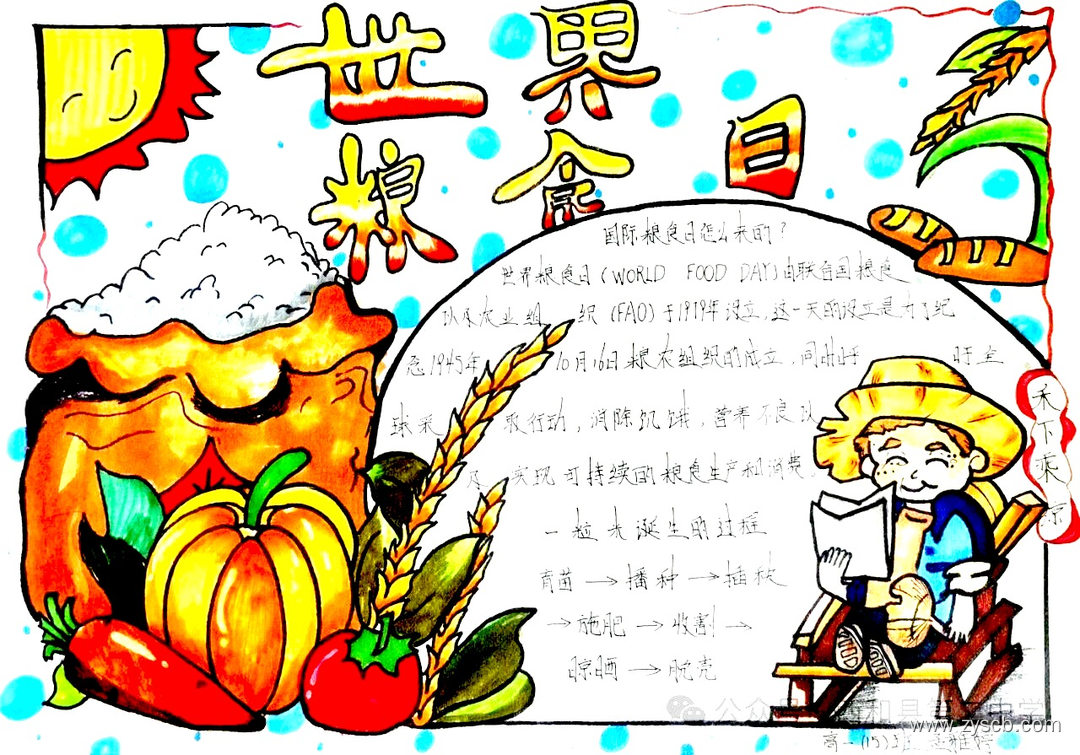 世界
粮食日
国际粮食日怎么来的？
世界粮食日(WORLD FOOD DAY)由联合国粮食
以及农业组织(FAO)于1979年设立,这一天的设立是为了纪
念1945年10月16日粮农组织的成立,同时呼吁全
球采取行动,消除饥饿,营养不良以
及实现可持续的粮食生产和消费。
一粒米诞生的过程
育苗→播种→插秧
→施肥→收割→
晾晒→脱壳
禾下乘凉
高一(15)
www.zyscb.com